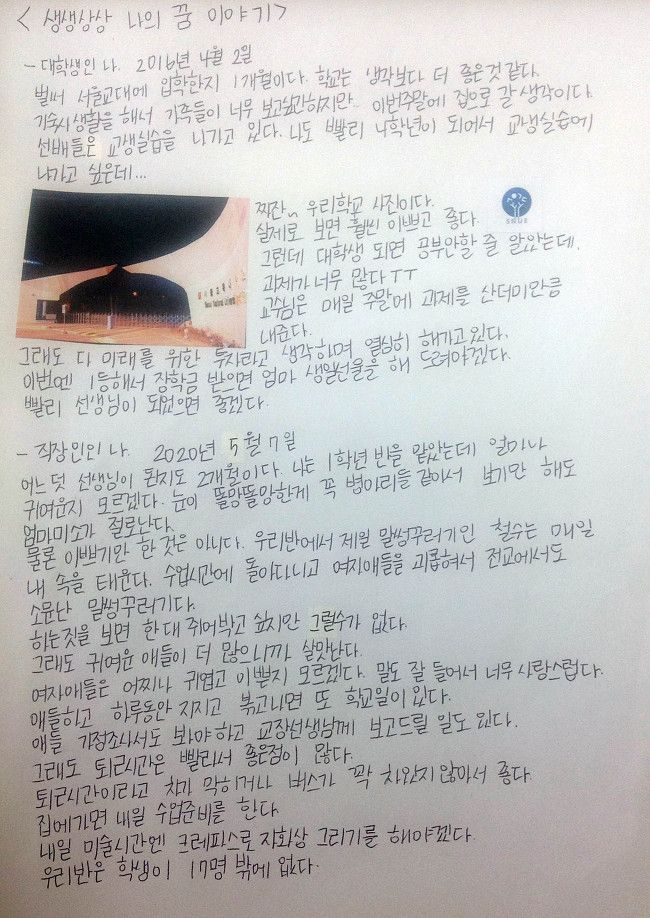 < 생생상상 나의 꿈 이야기 >
- 대학생인 나. 2016년 4월 2일
벌써 서울교대에 입학한지 1개월이다. 학교는 생각보다 더 좋은것 같다.
기숙사 생활을 해서 가족들이 너무 보고싶긴하지만.. 이번주말에 집으로 갈 생각이다.
선배들은 교생실습을 나가고 있다. 나도 빨리 4학년이 되어서 교생실습에
나가고 싶은데...
찌잔~ 우리학교 사진이다.
실제로 보면 훨씬 이쁘고 좋다.
SNUE
그런데 대학생 되면 공부안할 줄 알았는데,
과제가 너무 많다 ㅜㅜ
교수님은 매일 주말에 과제를 산더미만큼
내준다.
그래도 다 미래를 위한 투자라고 생각하며 열심히 해가고있다.
이번엔 1등해서 장학금 받으면 엄마 생일선물을 해 드려야겠다.
빨리 선생님이 되었으면 좋겠다.
- 직장인인 나. 2020년 5월 7일
어느덧 선생님이 된지도 2개월이다. 나는 1학년 반을 맡았는데 얼마나
귀여운지 모르겠다. 눈이 똘망똘망한게 꼭 병아리들 같아서 보기만 해도
엄마미소가 절로난다.
물론 이쁘기만 한 것은 아니다. 우리반에서 제일 말썽꾸러기인 철수는 매일
내 속을 태운다. 수업시간에 돌아다니고 여자애들을 괴롭혀서 전교에서도
소문난 말썽꾸러기다.
하는짓을 보면 한대 쥐어박고 싶지만 그럴수가 없다.
그래도 귀여운 애들이 더 많으니까 살맛난다.
여자애들은 어찌나 귀엽고 이쁜지 모르겠다. 말도 잘 들어서 너무 사랑스럽다.
애들하고 하루동안 지지고 볶고나면 또 학교일이 있다.
애들 가정조사서도 봐야하고 교장선생님께 보고드릴 일도 있다.
그래도 퇴근시간은 빨리서 좋은점이 많다.
퇴근시간이라고 차가 막히거나 버스가 꽉 차있지 않아서 좋다.
집에가면 내일 수업준비를 한다.
내일 미술시간엔 크레파스로 자화상 그리기를 해야겠다.
우리반은 학생이 17명 밖에 없다.